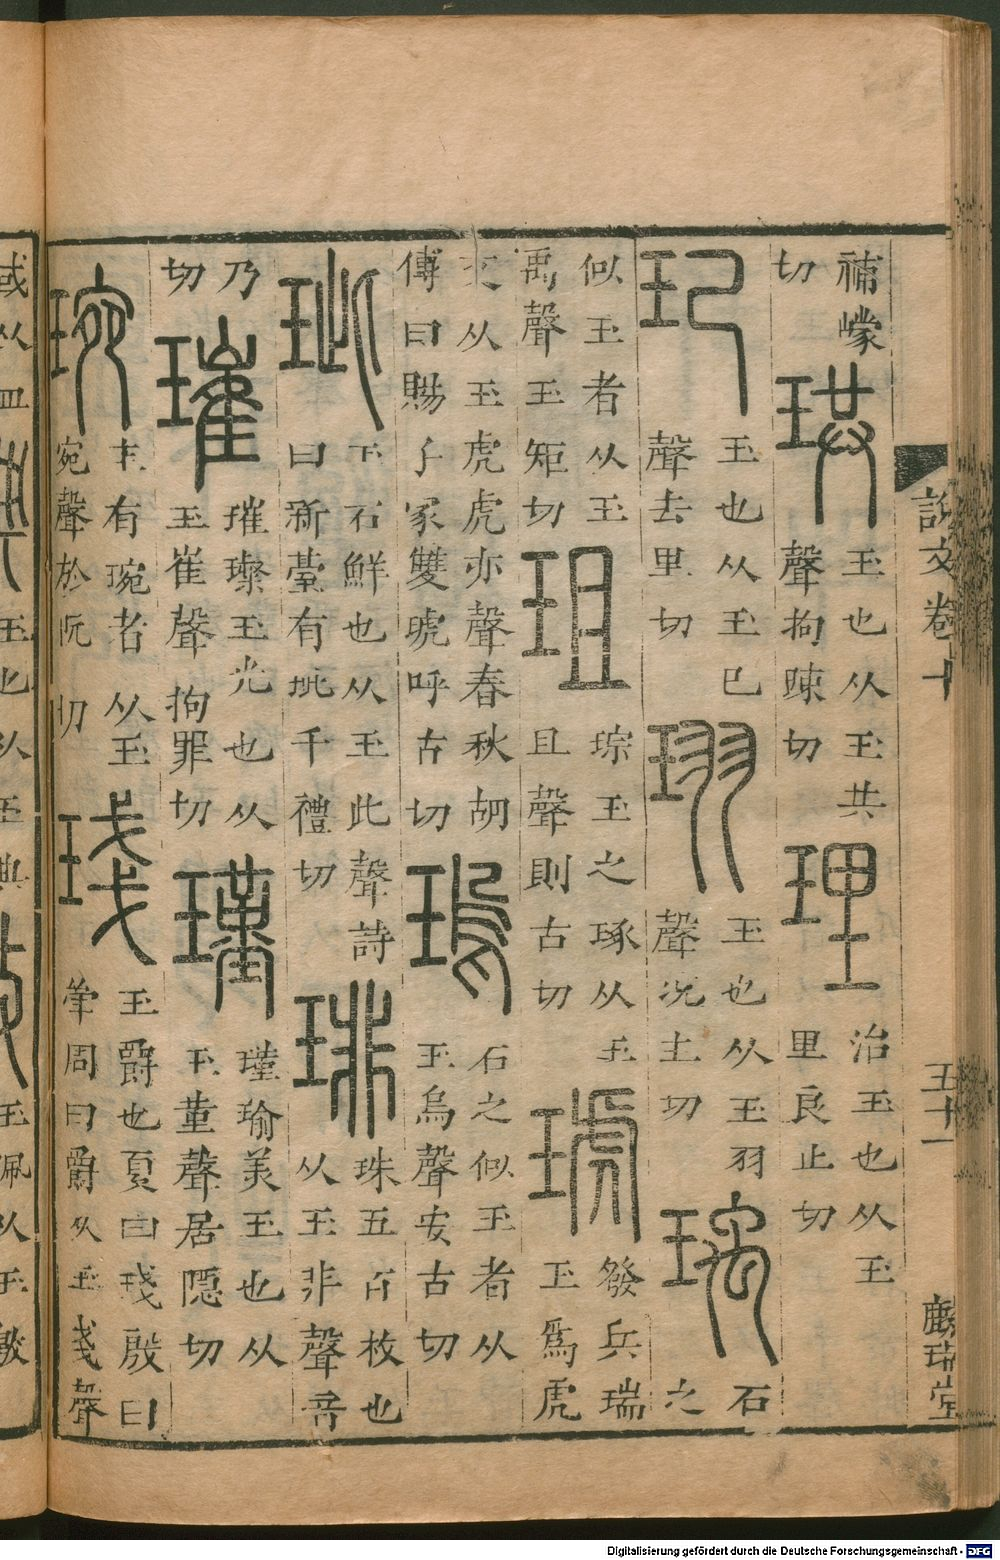 說文卷十
五十一
麟瑞堂
補幪
切
珙
玉也从玉共
聲拘竦切
理
治玉也从玉
里良止切
玘
玉也从玉巳
聲去里切
珝
玉也从玉羽
聲況主切
瑀
石
之
似玉者从玉
禹聲玉矩切
珇
琮玉之琢从玉
且聲則古切
琥
發兵瑞
玉爲虎
文从玉虎虎亦聲春秋胡
傳曰賜子家雙琥呼古切
瑦
石之似玉者从
玉烏聲安古切
玼
玉石鮮也从玉此聲詩
曰新臺有玼千禮切
琲
珠五百枚也
从玉非聲音
乃
切
璀
璀璨玉光也从
玉崔聲拘罪切
瑾
瑾瑜美玉也从
玉堇聲居隱切
琬
圭有琬者从玉
宛聲於阮切
琖
玉爵也夏曰琖殷曰
斝周曰爵从玉戔聲
或从皿
玉也从玉典
玉佩从玉敫